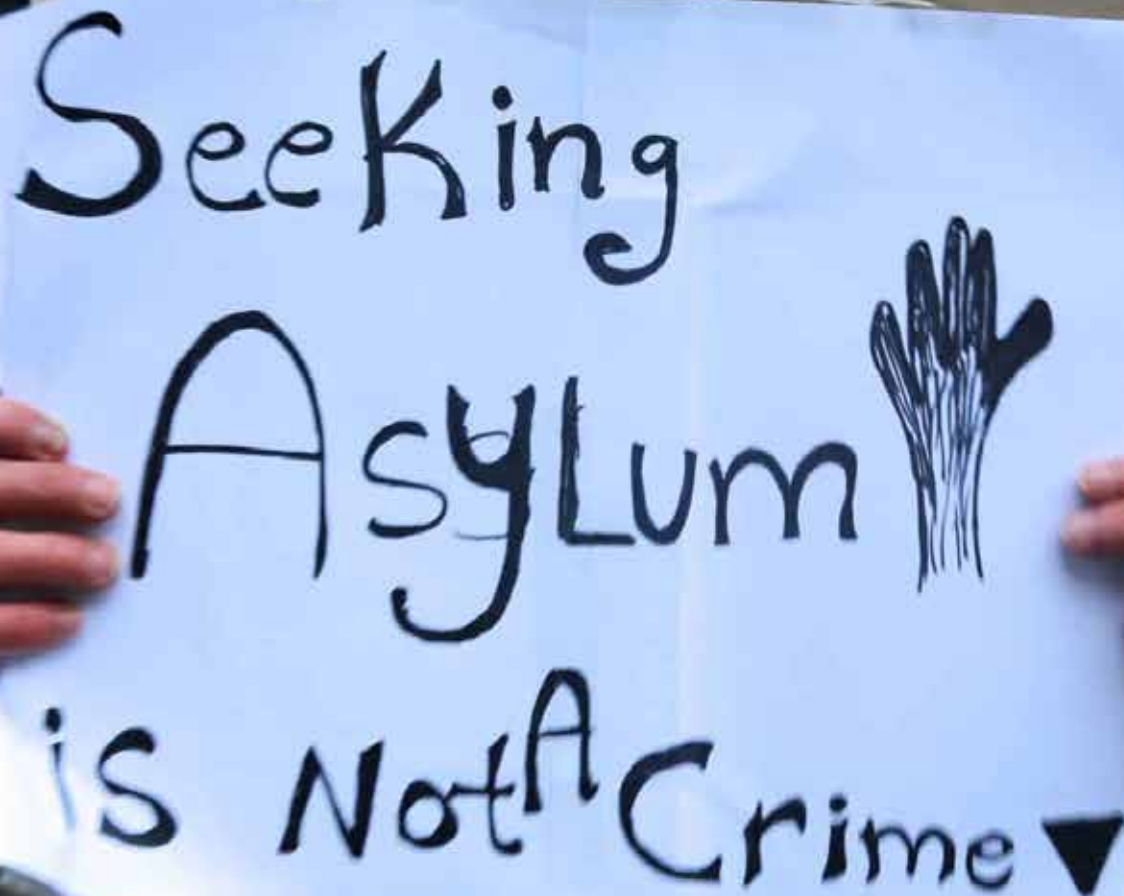 SeeKing
AsyLum
is Not A Crime